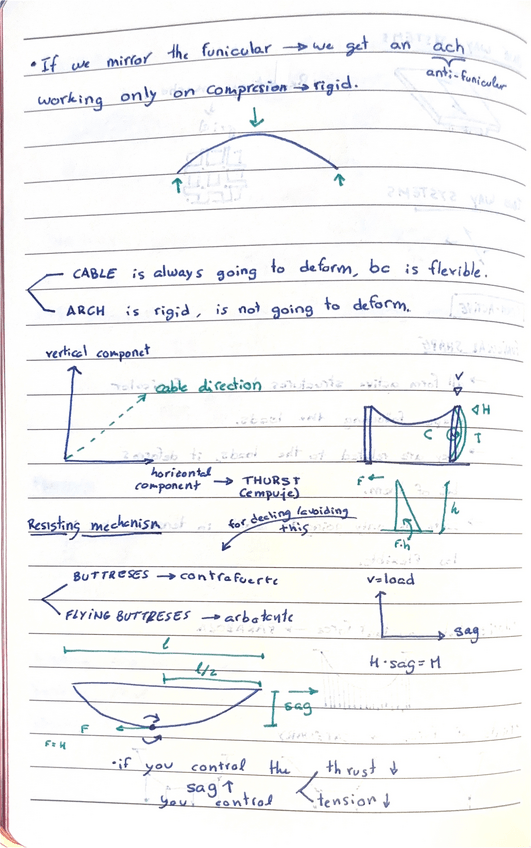 • If we mirror the funicular → we get an ach
anti-funicular
working only on compresion → rigid.
CABLE is always going to deform, bc is flexible.
ARCH is rigid, is not going to deform.
vertical componet
cable direction
V
H
C
T
horicontal
component → THURST
(empuje)
F
h
F·h
Resisting mechanism
for dealing (avoiding
this
BUTTRESES → contrafuerte
FLYING BUTTRESES → arbotante
V=load
sag
H·sag=M
l
l/2
sag
F
F=H
• if you control the thrust ↓
sag ↑
you control tension ↓